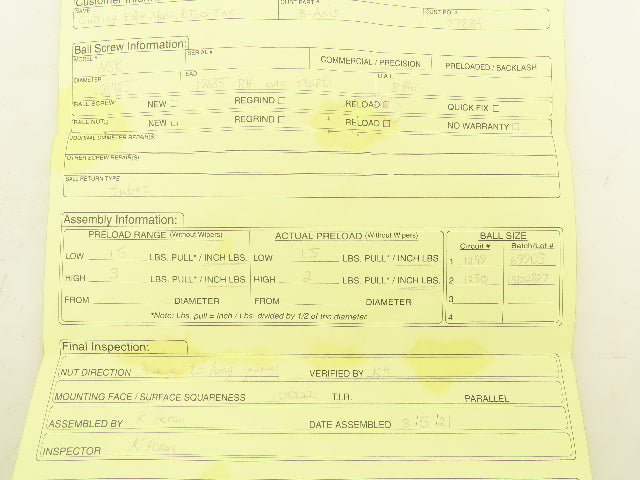 Customer Inform
NAME CUST PART # CUST PO #
Cutting Edge Mach & Tool Inc B-Axis 77884
Ball Screw Information:
MODEL * SERIAL # COMMERCIAL / PRECISION PRELOADED / BACKLASH
DIAMETER LEAD O.A.L.
BALL SCREW NEW REGRIND RELOAD QUICK FIX
BALL NUT NEW REGRIND RELOAD NO WARRANTY
JOURNAL DIAMETER REPAIR(S)
OTHER SCREW REPAIR(S)
BALL RETURN TYPE
Tubes
Assembly Information:
PRELOAD RANGE (Without Wipers) ACTUAL PRELOAD (Without Wipers) BALL SIZE
Circuit # Batch/Lot #
LOW 1.5 LBS. PULL* / INCH LBS. LOW 1.5 LBS. PULL* / INCH LBS 1 .1249
HIGH 3 LBS. PULL* / INCH LBS. HIGH 2 LBS. PULL* / INCH LBS 2 .1250
FROM DIAMETER FROM DIAMETER 3
*Note: Lbs. pull = Inch / Lbs. divided by 1/2 of the diameter. 4
Final Inspection:
NUT DIRECTION to long journal VERIFIED BY
MOUNTING FACE / SURFACE SQUARENESS .0002 T.I.R. PARALLEL
ASSEMBLED BY K DATE ASSEMBLED 8 15 21
INSPECTOR K